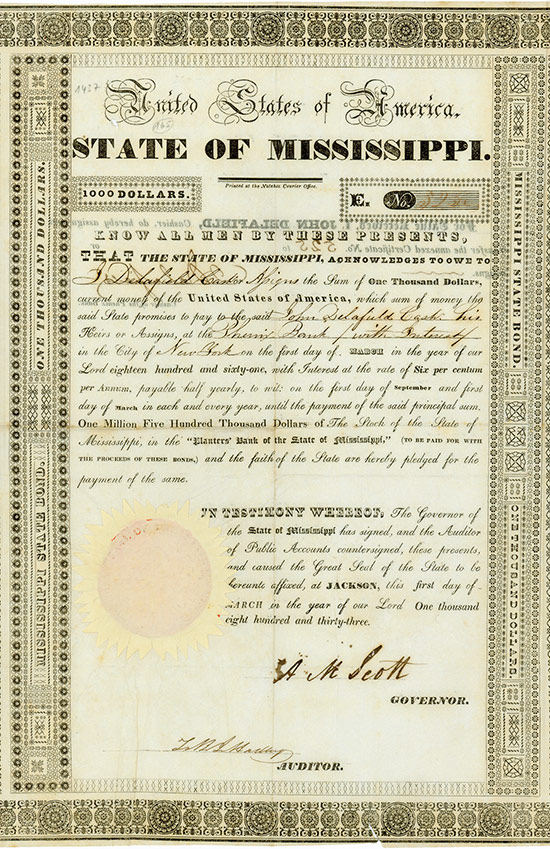 1437
United States of America.
STATE OF MISSISSIPPI.
Printed at the Natchez Courier Office.
1000 DOLLARS.
E. No
For Value Received, I JOHN DELAFIELD, Cashier, do hereby assign
transfer the annexed Certificate No. 525 to
KNOW ALL MEN BY THESE PRESENTS,
THAT THE STATE OF MISSISSIPPI, ACKNOWLEDGES TO OWE TO
J Delafield Cash or Assigns the Sum of One Thousand Dollars,
current money of the United States of America, which sum of money the
said State promises to pay to the said John Delafield Cash. his
Heirs or Assigns, at the Phenix Bank (with Interest)
in the City of New York on the first day of MARCH in the year of our
Lord eighteen hundred and sixty-one, with Interest at the rate of Six per centum
per Annum, payable half yearly, to wit: on the first day of September and first
day of March in each and every year, until the payment of the said principal sum.
One Million Five Hundred Thousand Dollars of The Stock of the State of
Mississippi, in the "Planters' Bank of the State of Mississippi," (TO BE PAID FOR WITH
THE PROCEEDS OF THESE BONDS,) and the faith of the State are hereby pledged for the
payment of the same.
IN TESTIMONY WHEREOF, The Governor of
the State of Mississippi has signed, and the Auditor
of Public Accounts countersigned, these presents,
and caused the Great Seal of the State to be
hereunto affixed, at JACKSON, this first day of
MARCH in the year of our Lord One thousand
eight hundred and thirty-three.
A M Scott
GOVERNOR.
AUDITOR.
ONE THOUSAND DOLLARS.
MISSISSIPPI STATE BOND.
MISSISSIPPI STATE BOND.
ONE THOUSAND DOLLARS.